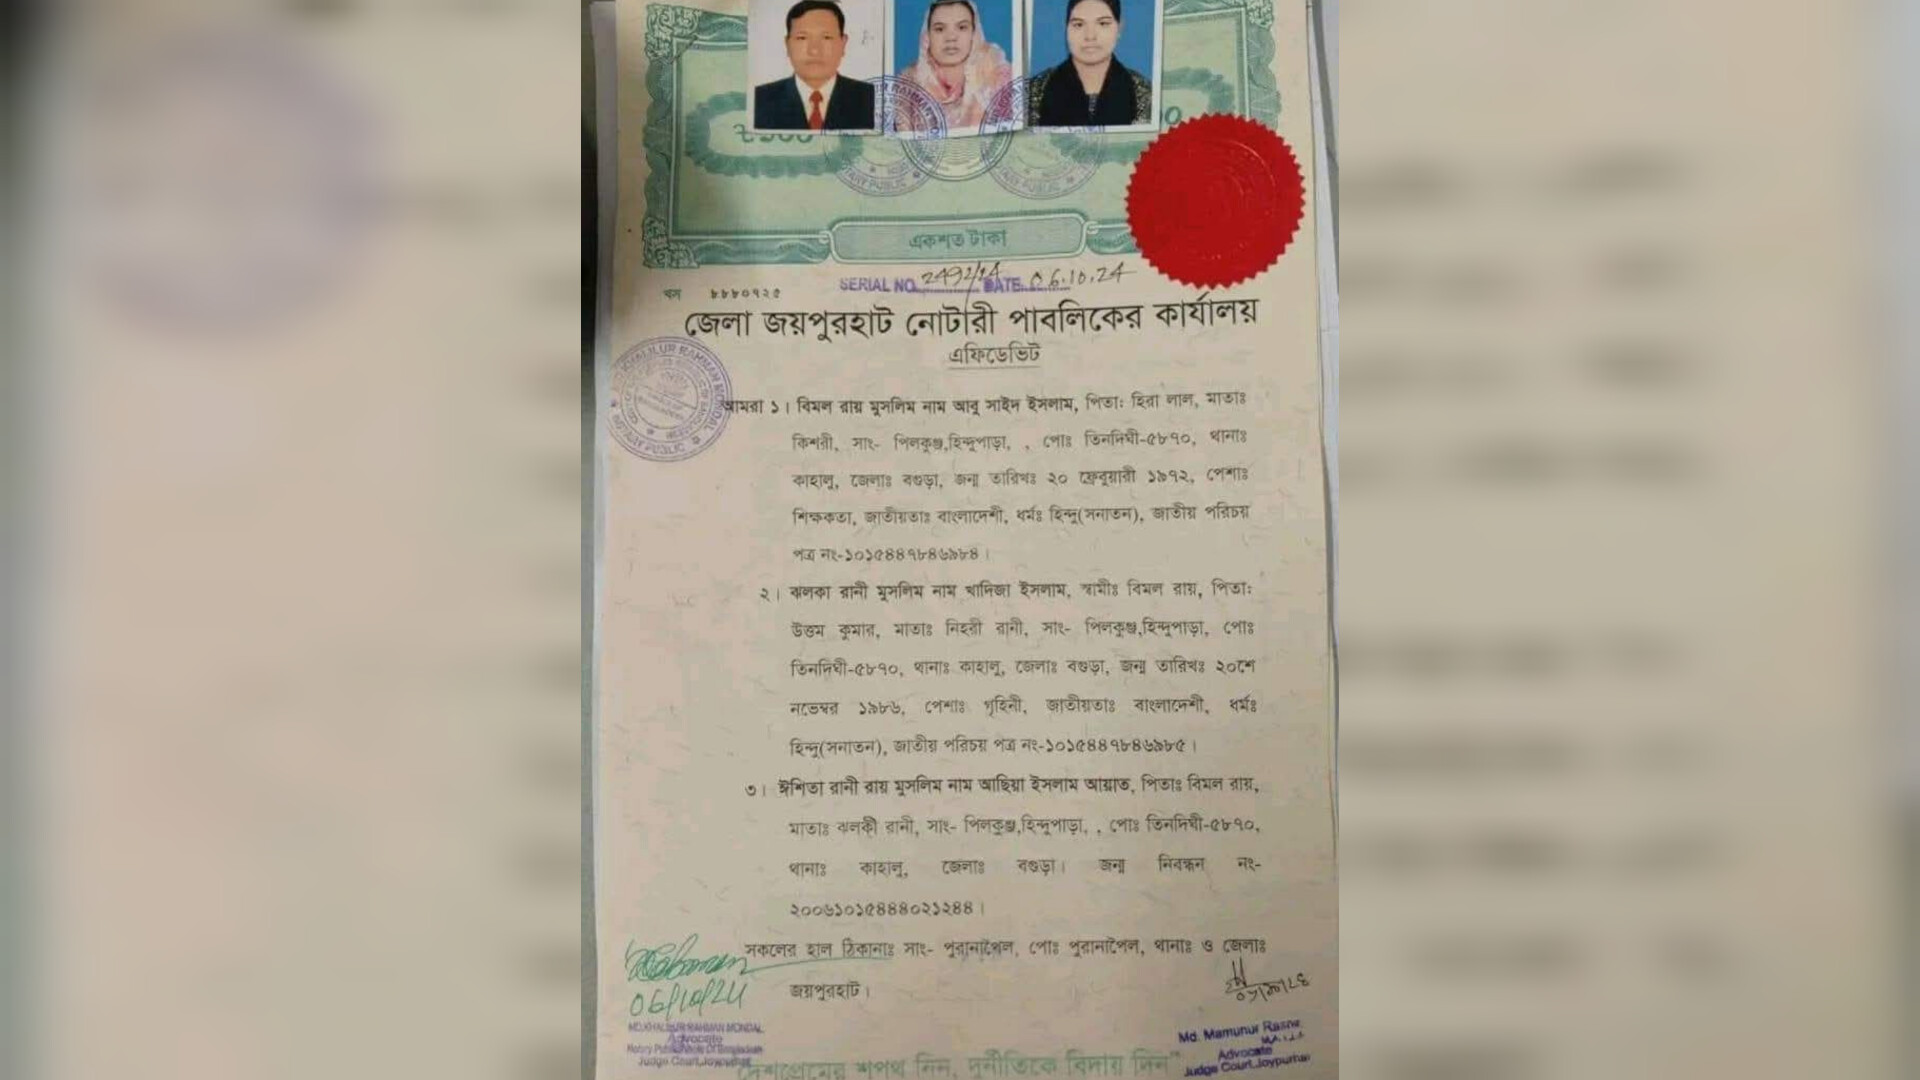 একশত টাকা
খস ৮৮৮০৭২৫
SERIAL NO. 2492/24 DATE. 06.10.24
জেলা জয়পুরহাট নোটারী পাবলিকের কার্যালয়
এফিডেভিট
আমরা ১। বিমল রায় মুসলিম নাম আবু সাইদ ইসলাম, পিতা: হিরা লাল, মাতাঃ
কিশরী, সাং- পিলকুঞ্জ,হিন্দুপাড়া, , পোঃ তিনদিঘী-৫৮৭০, থানাঃ
কাহালু, জেলাঃ বগুড়া, জন্ম তারিখঃ ২০ ফেব্রুয়ারী ১৯৭২, পেশাঃ
শিক্ষকতা, জাতীয়তাঃ বাংলাদেশী, ধর্মঃ হিন্দু(সনাতন), জাতীয় পরিচয়
পত্র নং-১০১৫৪৪৭৮৪৬৯৮৪।
২। ঝলকা রানী মুসলিম নাম খাদিজা ইসলাম, স্বামীঃ বিমল রায়, পিতা:
উত্তম কুমার, মাতাঃ নিহরী রানী, সাং- পিলকুঞ্জ,হিন্দুপাড়া, পোঃ
তিনদিঘী-৫৮৭০, থানাঃ কাহালু, জেলাঃ বগুড়া, জন্ম তারিখঃ ২০শে
নভেম্বর ১৯৮৬, পেশাঃ গৃহিনী, জাতীয়তাঃ বাংলাদেশী, ধর্মঃ
হিন্দু(সনাতন), জাতীয় পরিচয় পত্র নং-১০১৫৪৪৭৮৪৬৯৮৫।
৩। ঈশিতা রানী রায় মুসলিম নাম আছিয়া ইসলাম আয়াত, পিতাঃ বিমল রায়,
মাতাঃ ঝলকী রানী, সাং- পিলকুঞ্জ,হিন্দুপাড়া, , পোঃ তিনদিঘী-৫৮৭০,
থানাঃ কাহালু, জেলাঃ বগুড়া। জন্ম নিবন্ধন নং-
২০০৬১০১৫৪৪৪০২১২৪৪।
সকলের হাল ঠিকানাঃ সাং- পুরানাপৈল, পোঃ পুরানাপৈল, থানাঃ ও জেলাঃ
জয়পুরহাট।
06/10/24
MD.KHALILUR RAHMAN MONDAL
Advocate
Notary Public
Judge Court, Joypurhat
Md. Mamunur
Advocate
Judge Court, Joypurhat
দেশপ্রেমের শপথ নিন, দুর্নীতিকে বিদায় দিন"